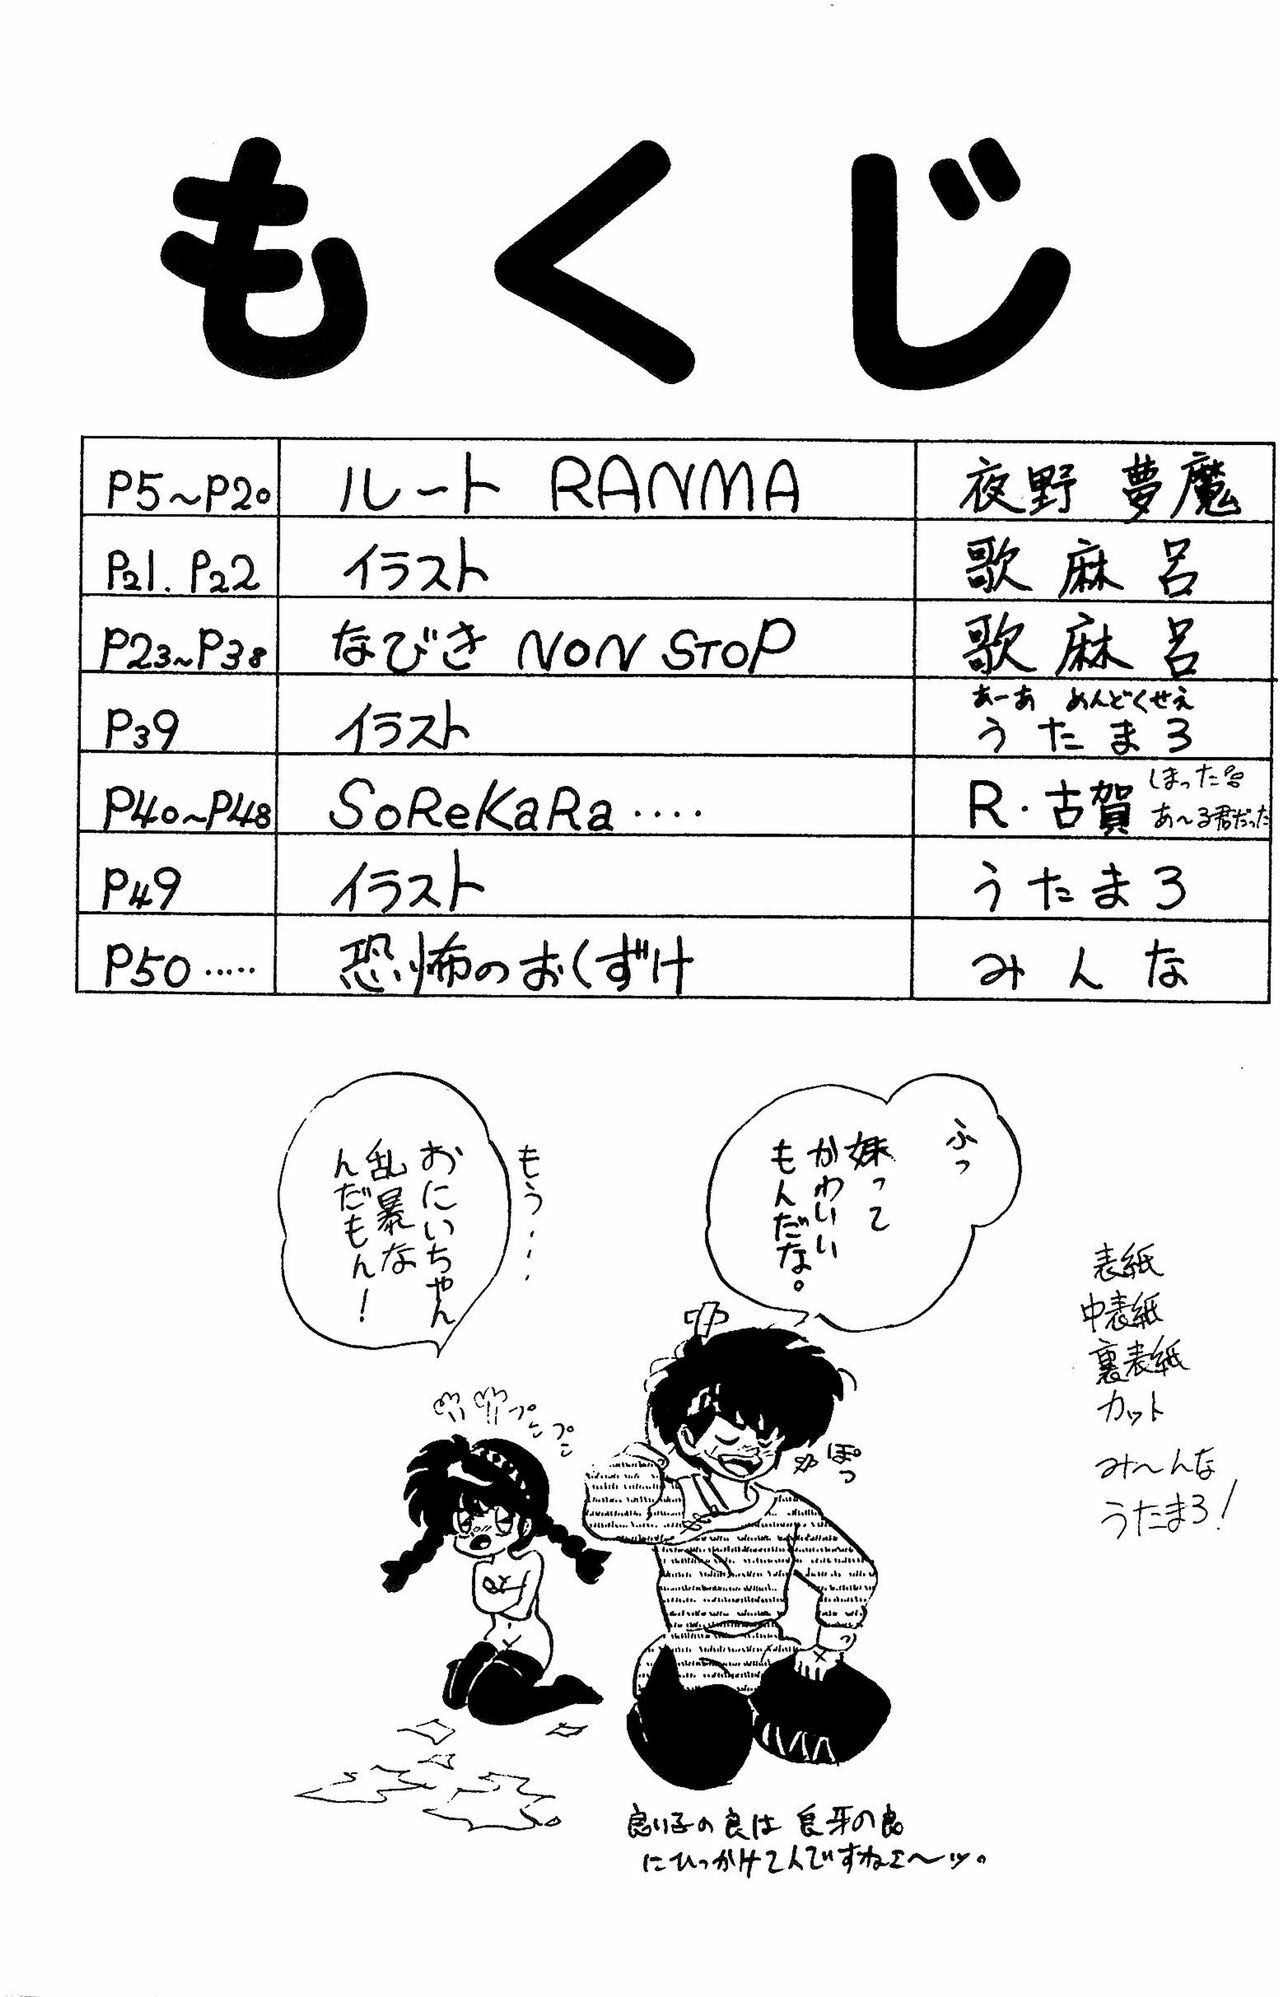 もくじ
P5～P20 ルート RANMA 夜野 夢魔
P21. P22 イラスト 歌麻呂
P23～P38 なびき NON STOP 歌麻呂
P39 イラスト あーあ めんどくせえ
うたまろ
P40～P48 SoReKaRa‥‥ R・古賀 しまった
あ～る君だった
P49 イラスト うたまろ
P50‥‥‥ 恐怖のおくずけ みんな
ふっ
妹って
かわいい
もんだな。
もう‥‥
おにいちゃん
乱暴な
んだもん！
プン
プン
ぽっ
表紙
中表紙
裏表紙
カット
み～んな
うたまろ！
良い子の良は 良牙の良
にひっかけてんですねェ～ッ。